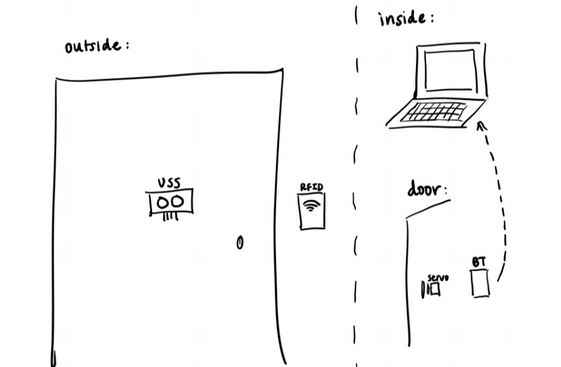 outside:
USS
RFID
inside:
door:
servo
BT